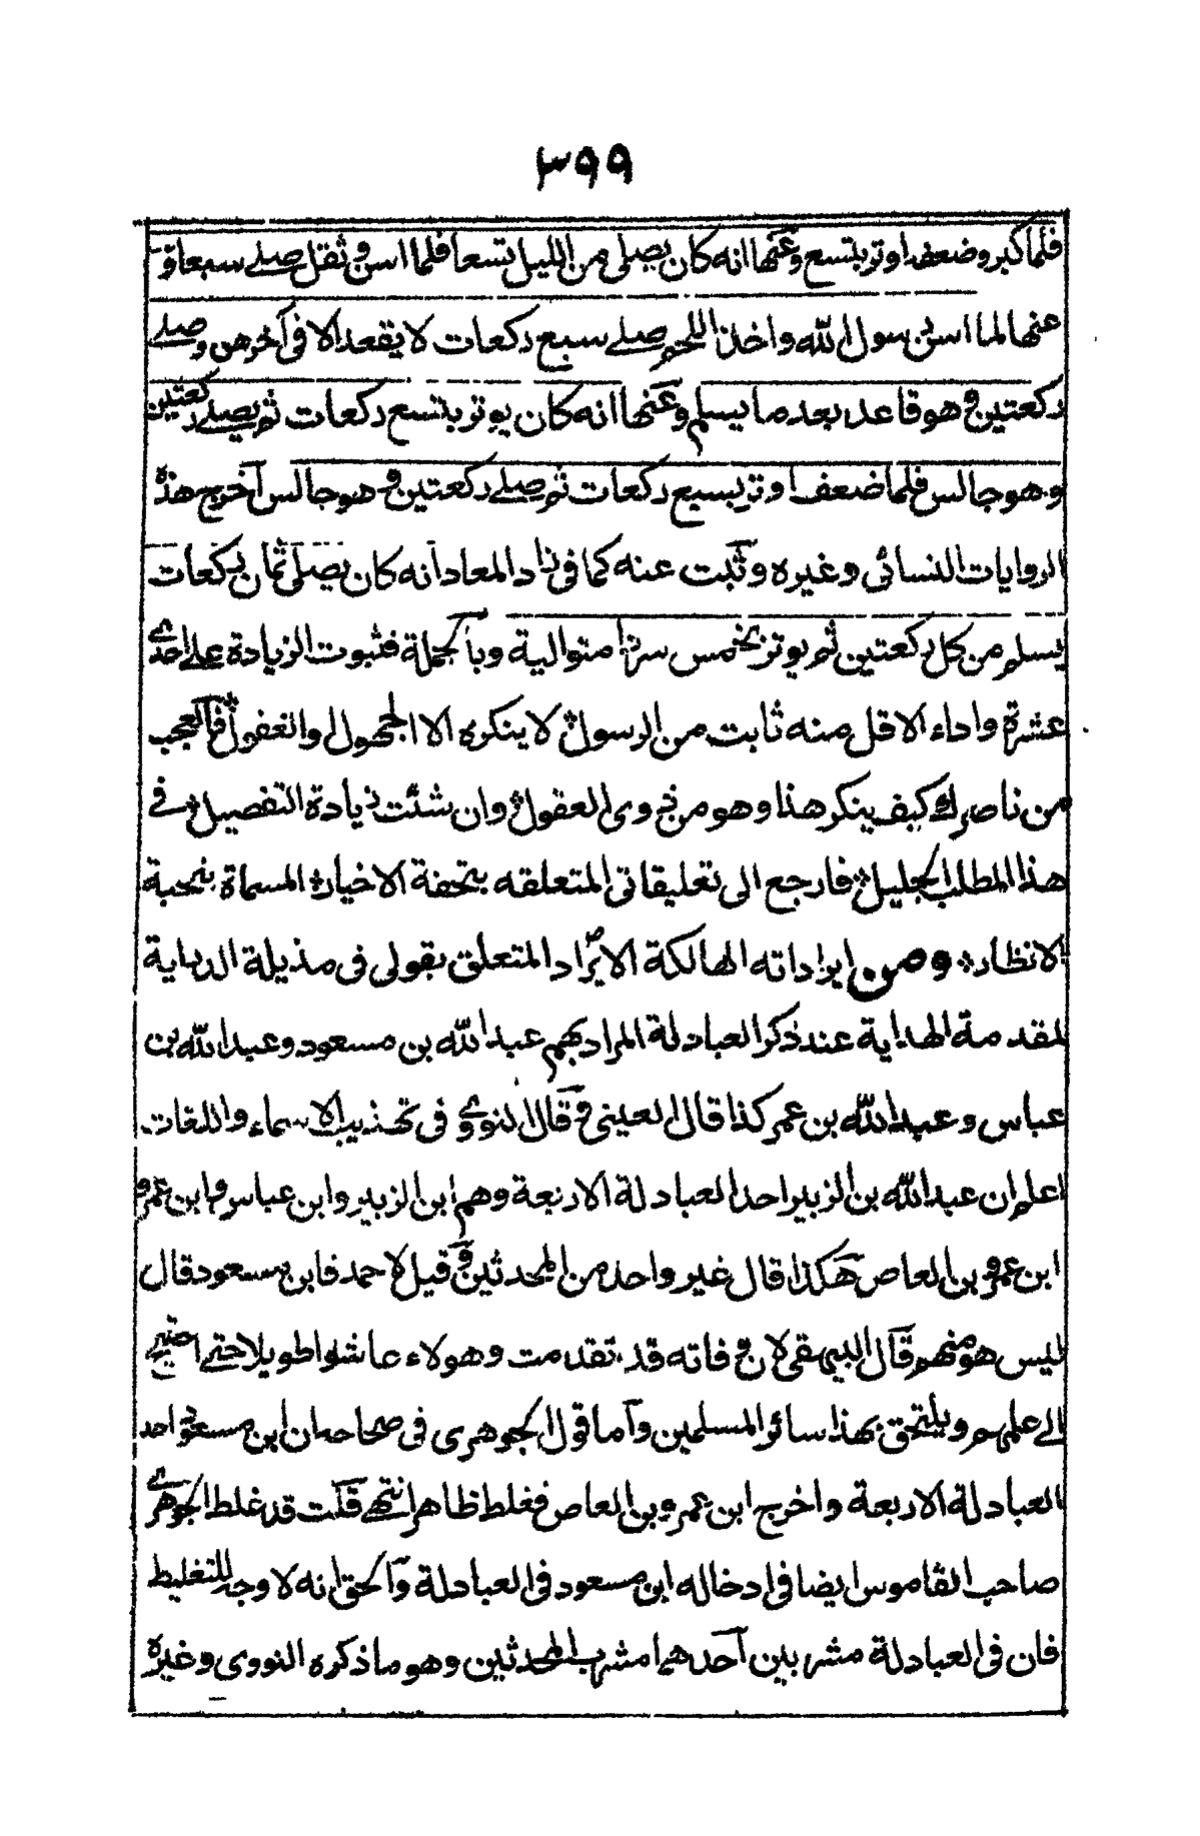 ٣٩٩
فلما كبر وضعف اوتر بتسع وعنها انه كان يصلى من الليل تسعا فلما اسن وثقل صلے سبعا و
عنها لما اسن رسول الله واخذ اللحم صلے سبع ركعات لا يقعد الا فى آخرهن وصلے
ركعتين وهو قاعد بعد ما يسلم وعنها انه كان يوتر بتسع ركعات ثم يصلے ركعتين
وهو جالس فلما ضعف اوتر بسبع ركعات ثم صلے ركعتين وهو جالس آخرج هذه
الروايات النسائى وغيره وثبت عنه كما فى زاد المعاد انه كان يصلى ثمان ركعات
يسلم من كل ركعتين ثم يوتر بخمس سردا متوالية وبالجملة فثبوت الزيادة على احدى
عشرة واداء الاقل منه ثابت من الرسول لا ينكره الا الجهول والغفول فالعجب
من ناصرك كيف ينكر هذا وهو من ذوى العقول وان شئت زيادة التفصيل فے
هذا المطلب الجليل فارجع الى تعليقاتى المتعلقه بتحفة الاخيار المسماة بنخبة
الانظار ومن ايراداته الهالكة الايراد المتعلق بقولى فى مذيلة الدراية
لمقدمة الهداية عند ذكر العبادلة المراد بهم عبد الله بن مسعود وعبد الله بن
عباس وعبد الله بن عمر كذا قال العينى وقال النووى فى تهذيب الاسماء واللغات
اعلم ان عبد الله بن الزبير احد العبادلة الاربعة وهم ابن الزبير وابن عباس وابن عمر و
ابن عمرو بن العاص هكذا قال غير واحد من المحدثين وقيل لاحمد فابن مسعود قال
ليس هو منهم قال البيهقى لان وفاته قد تقدمت وهولاء عاشوا طويلا حتے احتيج
الے علمهم ويلتحق بهذا سائر المسلمين وآما قول الجوهرى فى صحاحه ان ابن مسعود احد
العبادلة الاربعة واخرج ابن عمرو بن العاص فغلط ظاهر انتهے قلت قد غلط الجوهرے
صاحب القاموس ايضا فى ادخاله ابن مسعود فى العبادلة وآلحق انه لا وجه للتغليط
فان فى العبادلة مشربين آحدهما مشرب المحدثين وهو ما ذكره النووى وغيره